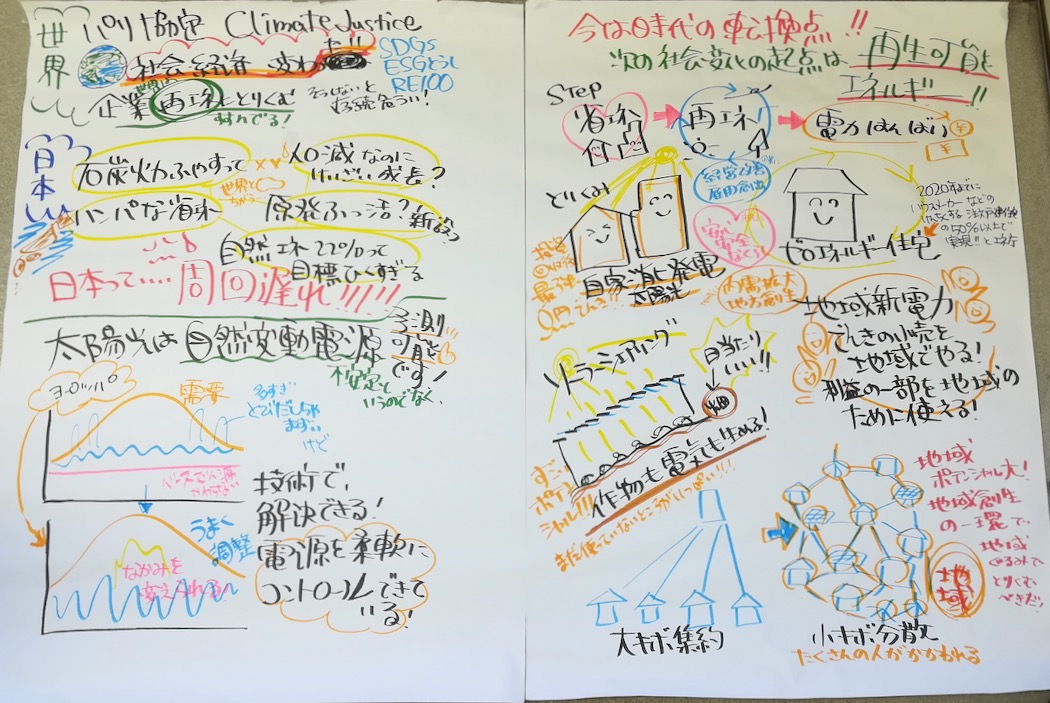 世界
パリ協定 Climate Justice
社会経済 変わった!!
SDGs
RE100
企業 再エネにとりくむ
世界は
すすんでる!
そうしないと
持続危うい!
日本
石炭火力ふやすって
人口減なのに
けいざい成長?
世界と
ちがう
ハンパな省エネ
原発ふっ活?新設?
自然エネ22%って
目標ひくすぎる
日本って…周回遅れ!!!!!
太陽光は自然変動電源
予測
可能
です!
不安定と
いうのでなく、
ヨーロッパ
需要
多すぎ
とびだしちゃ
まずい
けど
うまく
調整
なかみを
変えられる!
技術で、
解決できる!
電源を柔軟に
コントロールできて
いる!
今は時代の転換点!!
次の社会変化の起点は 再生可能
エネルギー!!
Step
省エネ
再エネ!
電力はんばい
¥
¥
経営改善
雇用創出
とりくみ
自家消費発電
太陽光
最強
安全
内需拡大
地方創生
ゼロエネルギー住宅
2020年までに
ハウスメーカーなどの
の50%以上で
実現!!
地域新電力
でんきの小売を
地域でやる!
利益の一部を地域の
ために使える!
ソーラーシェアリング
日当たり
いい!!
作物も電気も生める!
すごい
ポテン
シャル!!!
まだ使っていないところがいっぱい!!!
大キボ集約
小キボ分散
たくさんの人がかかわれる
地域
ポテンシャル大!
地域創生
の一環で、
地域
ぐるみで
とりくむ
べきだ!
地域